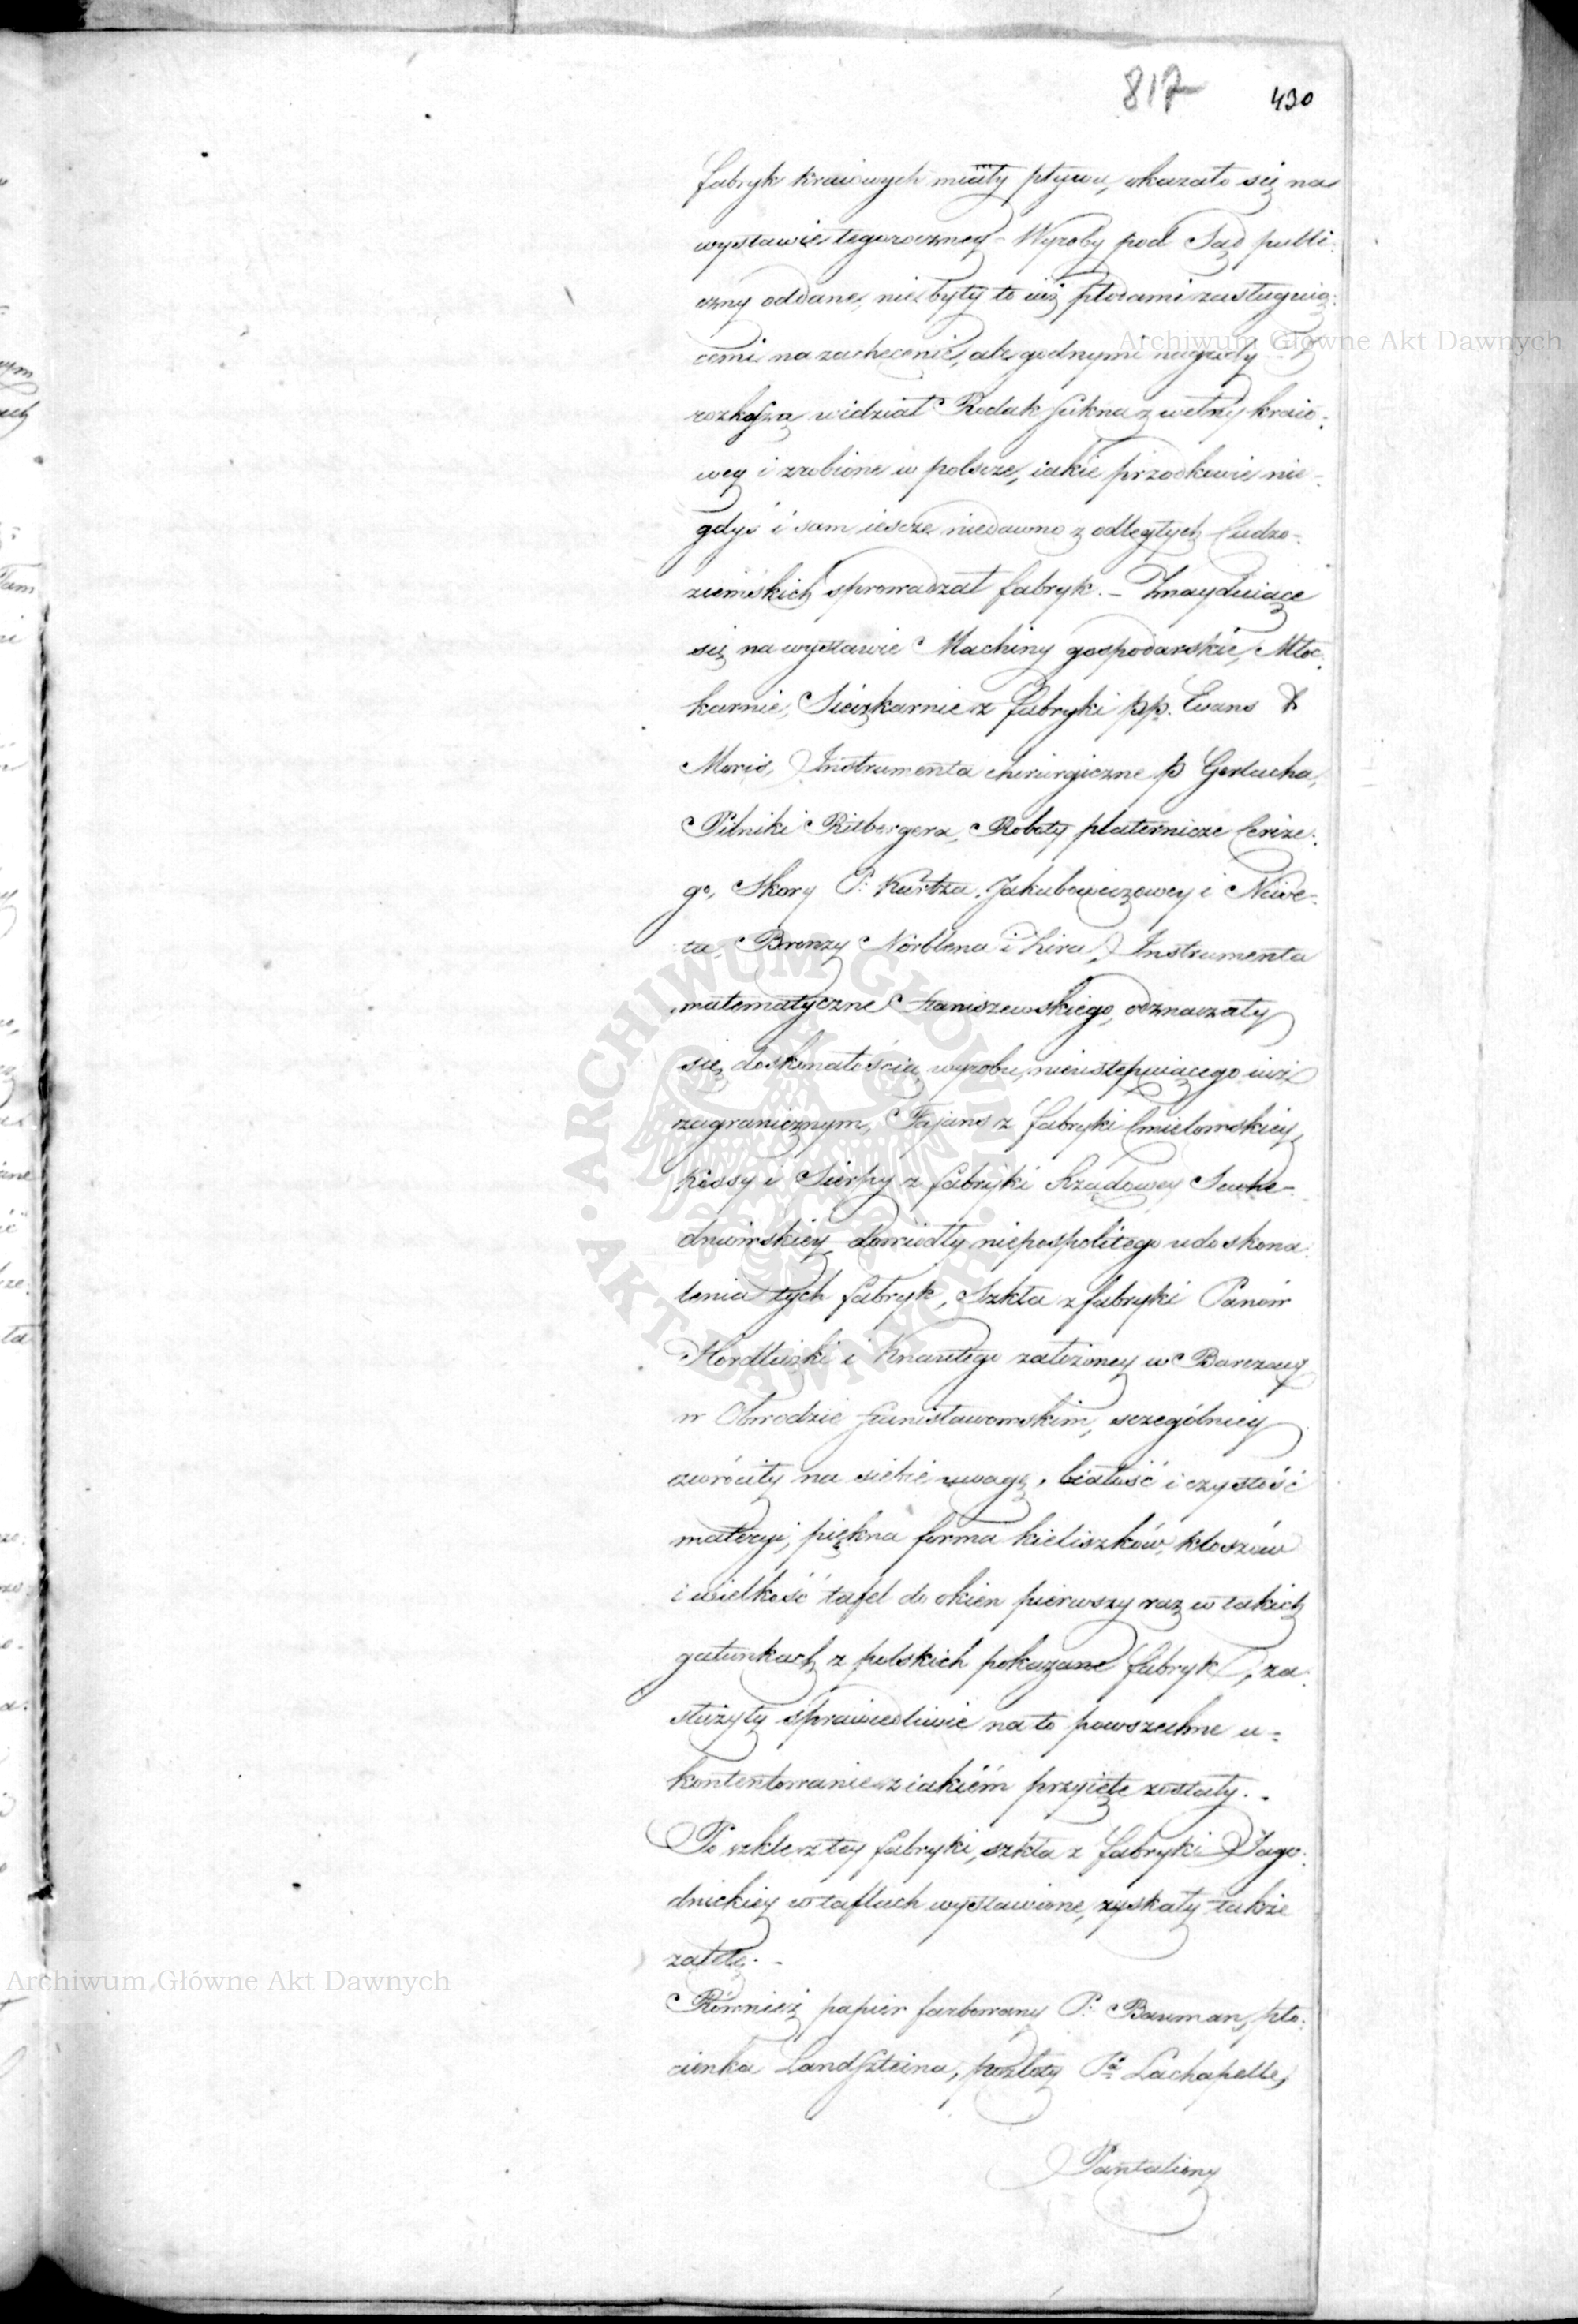 817 430
fabryk kraiowych miały pływu, okazało się na
wystawie tegoroczney - Wyroby pod Sąd publi:
czny oddane, nie były to iuż płodami zasługuią:
cemi na zachęcenie, ale godnymi nagrody
rozkoszą widział Rodak sukna z wełny kraio:
wey i zrobione w polscze, iakie przodkowie nie-
gdyś i sam iescze niedawno z odległych Cudzo-
ziemskich sprowadzał fabryk. - Znayduiące
się na wystawie Machiny gospodarskie, Młoc:
karnie, Sieczkarnie z fabryki pp. Evans &
Moris, Instrumenta chirurgiczne p Gerlacha,
Pilniki Ritbergera, Roboty platernicze Cerize:
go, Skory P: Kurtza, Jakubowiczowey i Niwe-
ta, Bronzy Norblena i Lira, Instrumenta
matematyczne Staniszewskiego, odznaczały
się doskonałością wyrobu, nieustępuiącego iuż
zagranicznym, Fajans z fabryki Cmielowskiey,
Kossy i Sierpy z fabryki Rządowey Suche-
dniowskiey dowiodły niepospolitego udoskona:
lenia tych fabryk, Szkła z fabryki Panów
Hordliczki i Knautego założoney w Barczący
w Obwodzie Stanisławowskim, sczególniey
zwróciły na siebie uwagę, białość i czystość
materyi, piękna forma kieliszków, kloszów
i wielkość tafel do okien pierwszy raz w takich
gatunkach z polskich pokazane fabryk, za:
służyły sprawiedliwie na to powszechne u=
kontentowanie z iakiém przyięte zostały. -
Po szkle z tey fabryki, szkła z fabryki Jago:
dnickiey w taflach wystawione, zyskały także
zaletę. -
Również papier farbowany P: Bauman, płó:
cienka Landszteina, pozłoty Pa Lachapelle,
Pantaliony
Archiwum Główne Akt Dawnych
Archiwum Główne Akt Dawnych
ARCHIWUM GŁÓWNE AKT DAWNYCH